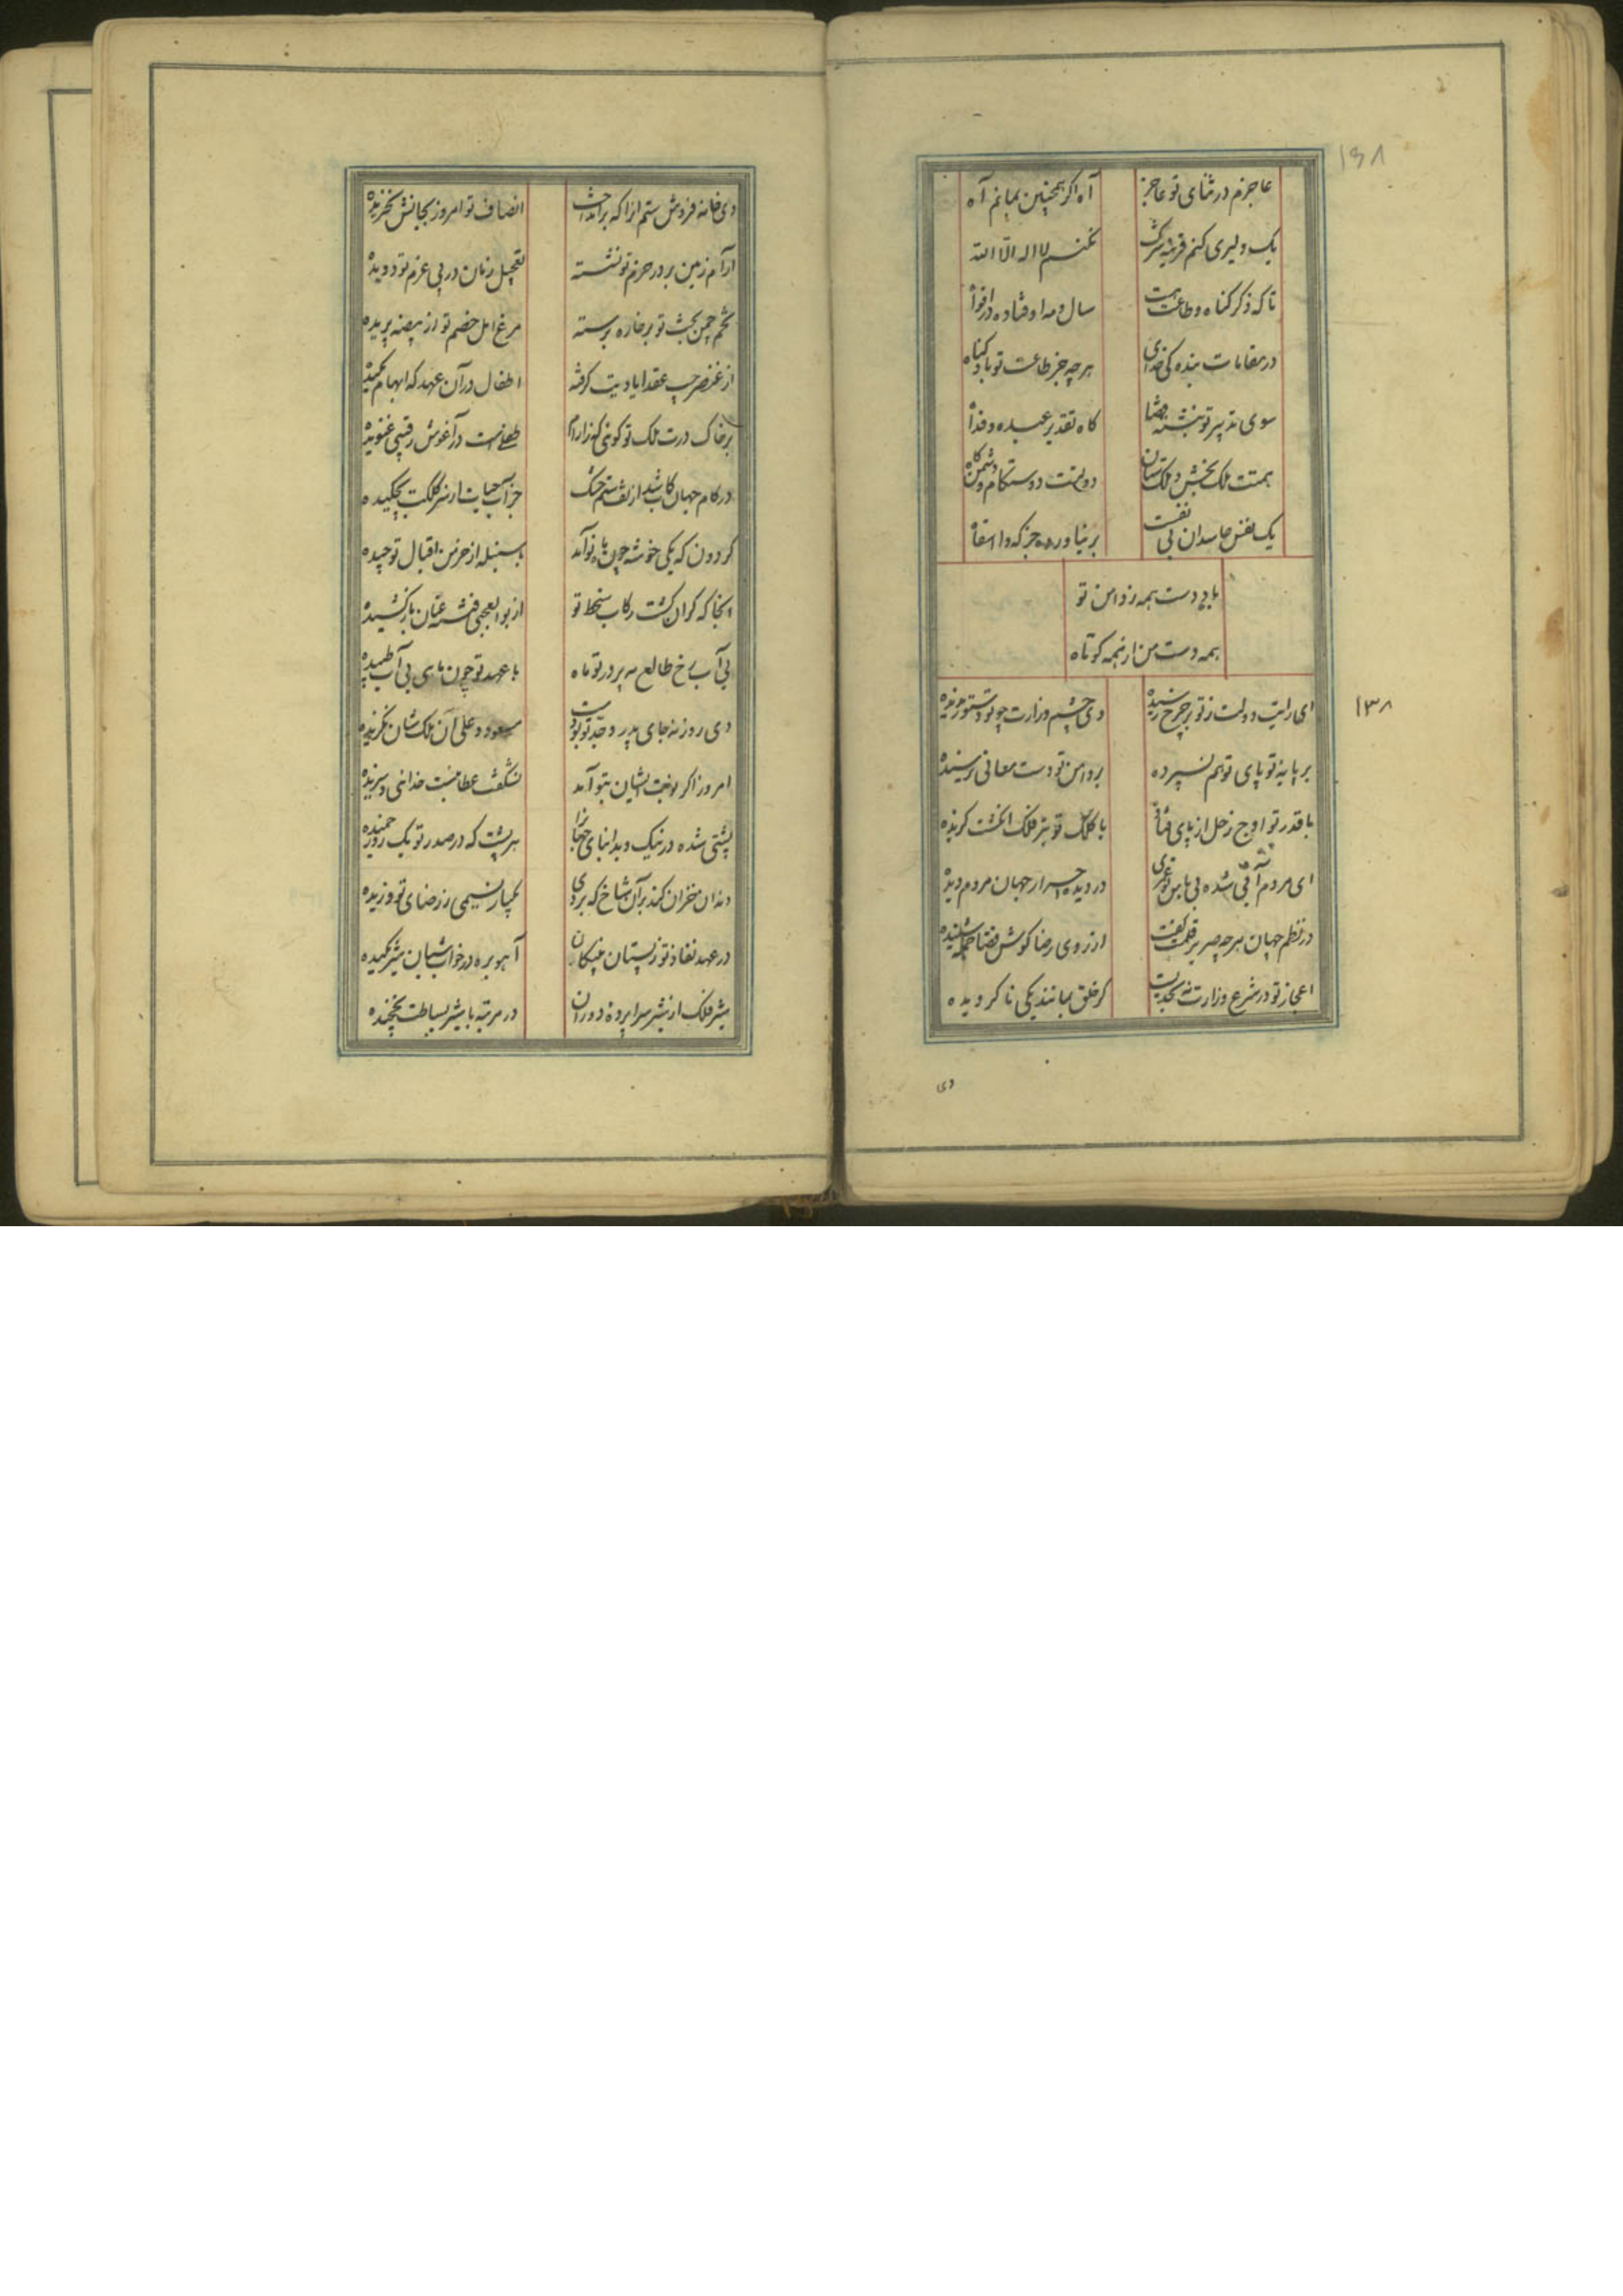 ۱۶۸
عاجزم در ثنای تو عاجز
آه اکر همچنین بمانم آه
یک دلیری کنم قرینه شرک
نکنم لا اله الا الله
تا که ذکر کناه و طاعت هست
سال و مه اوفتاده در افواه
در مقامات بنده کی خدای
هرچه جز طاعت تو باد کناه
سوی تدبیر تو نبشته قضا
کاه تقدیر عبده و فداه
همتت ملک بخش و ملک ستان
دولتت دوستکام و دشمن کاه
یک نفس حاسدان بی نفست
برنیاورده جز که وا اسفاه
باد دست همه ز دامن تو
همه دست من از همه کوتاه
۱۳۸
ای رایت دولت ز تو بر چرخ رسیده
وی چشم وزارت چو تو دستور ندیده
بر پایه تو پای توهم نسپرده
بر دامن تو دست معانی نرسیده
با قدر تو اوج زحل از پای فتاده
با کلک تو تیر فلک انکشت کزیده
ای مردم آبی شده بی باس تو عمری
در دیده احرار جهان مردم دیده
در نظم جهان هرچه صریر قلمت کفت
از روی رضا کوش قضا جمله شنیده
اعجاز تو در شرع وزارت نه بحدیست
کز خلق بمانند یکی ناکرویده
وی
وی خانه فروش ستم انرا که برانداخت
انصاف تو امروز بجانش بخریده
آرام زمین بر در حزم تو نشسته
تعجیل زمان در پی عزم تو دویده
تخم چمن بخت تو بر خاره برسته
مرغ امل خصم تو از بیضه پریده
اطفال در آن عهد که ابهام مکیده
بر خاک درت ملک تو کوئی که ز آرام
طفلیست در آغوش رقیبی غنویده
در کام جهان
جز آب حیات از سر کلکت نچکیده
کردون که یکی خوشه چون ماه نو آمد
بس سنبله از خرمن اقبال تو چیده
آنجا که کران کشت رکاب سخط تو
از بوالعجبی فتنه عنان باز کشیده
بی آب رخ طالع مه پرور تو ماه
با عهد تو چون ماهی بی آب طپیده
دی روز نه جای پدر و جد تو بودست
مسعود و علی آن ملکشان نکزیده
امروز اکر نوبت ایشان بتو آمد
نشکفت عطائیست خدائی و سزیده
پشتی شده در نیک و بد ابنای جهانرا
هر پشت که در صدر تو یک روز خمیده
دندان خزان کند بر آن شاخ که بروی
یکبار نسیمی ز رضای تو وزیده
در عهد نفاذ تو ز پستان پلنکان
آهو بره در خواب شبان شیر مکیده
شیر فلک از شیر سراپرده دوران
در مرتبه با شیر بساطت نچخیده